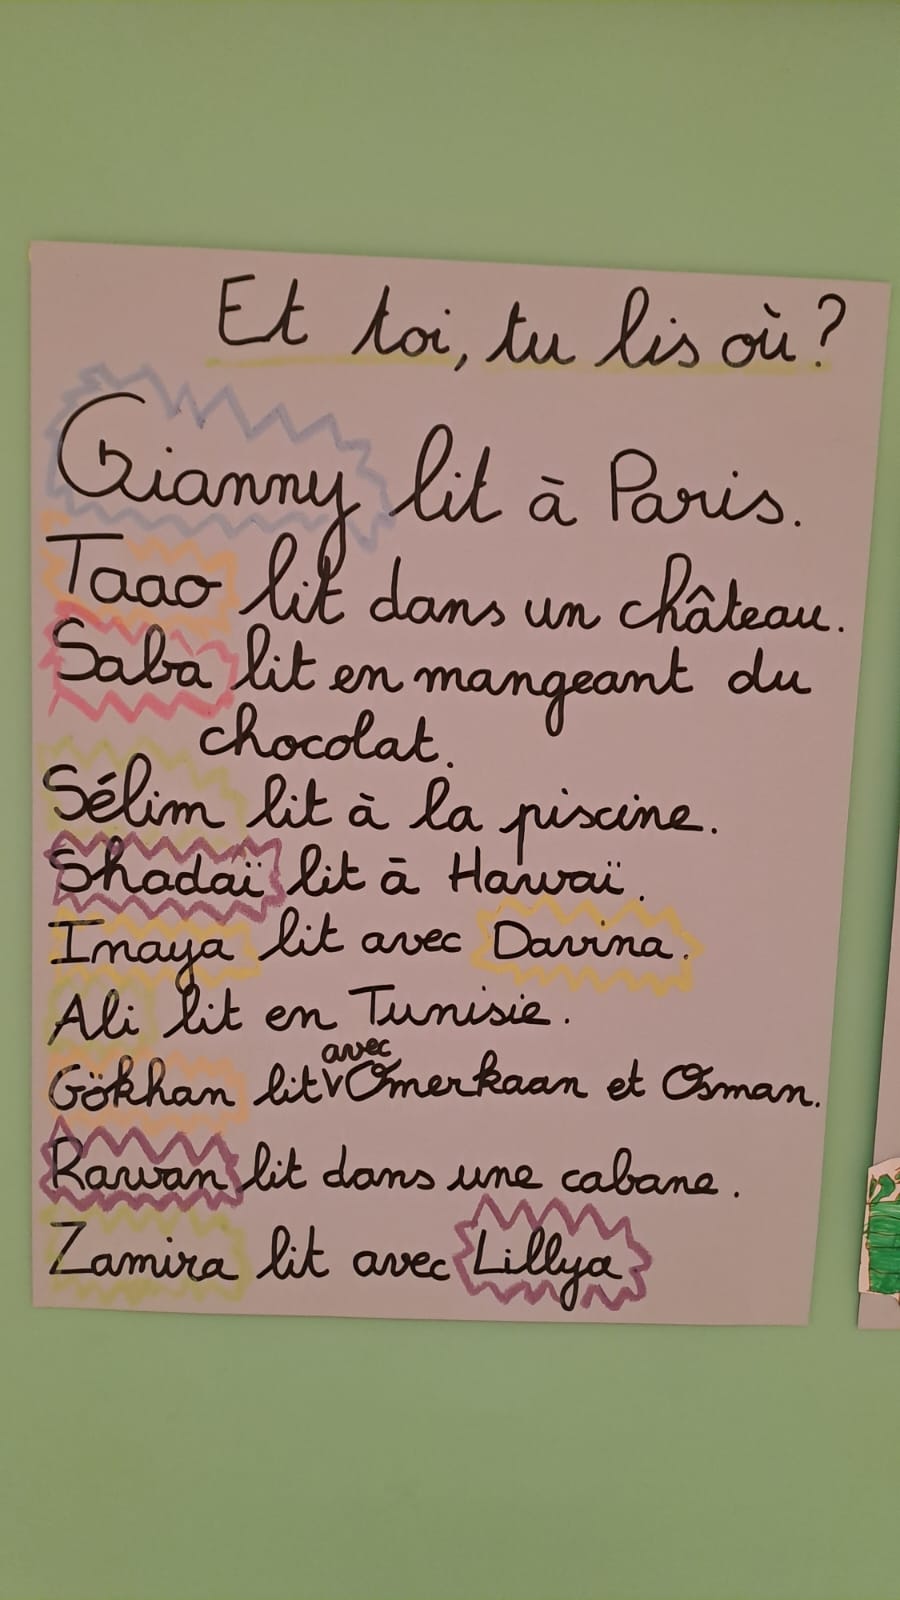 Et toi, tu lis où ?
Gianny lit à Paris.
Taao lit dans un château.
Saba lit en mangeant du
chocolat.
Sélim lit à la piscine.
Shadaï lit à Hawaï.
Imaya lit avec Davina.
Ali lit en Tunisie.
Gökhan lit avec Omerkaan et Osman.
Rawan lit dans une cabane.
Zamira lit avec Lillya